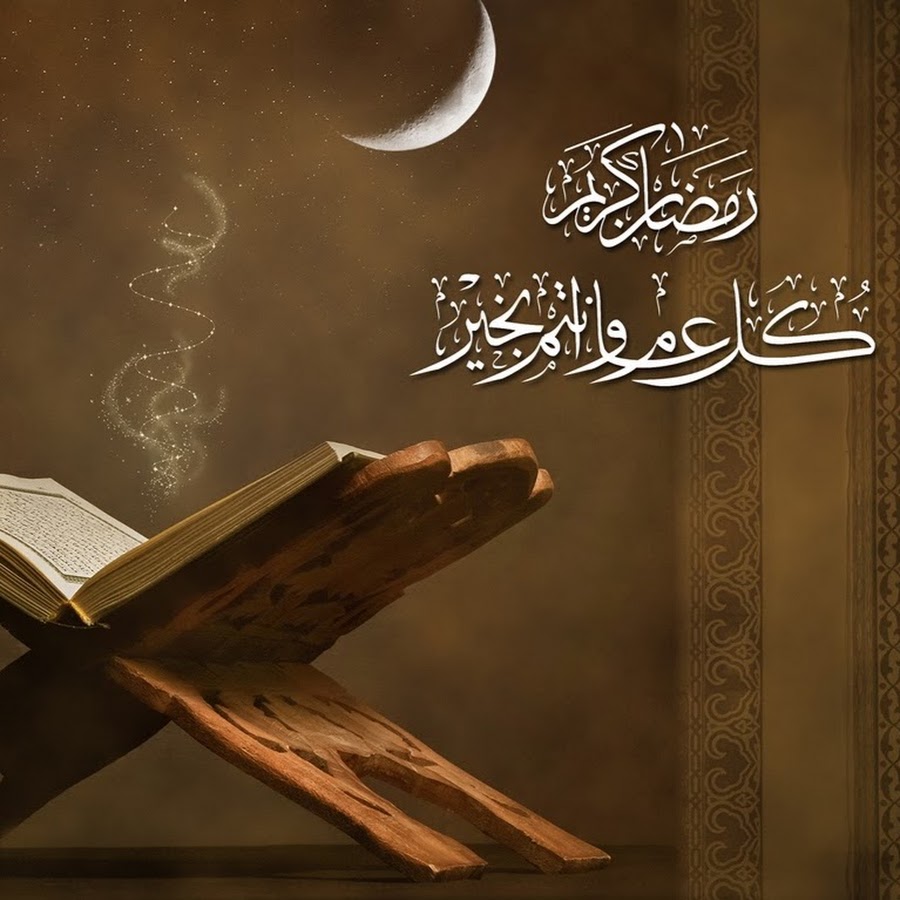 رَمَضَان كَرِيم
كُل عام وانتم بخيْر